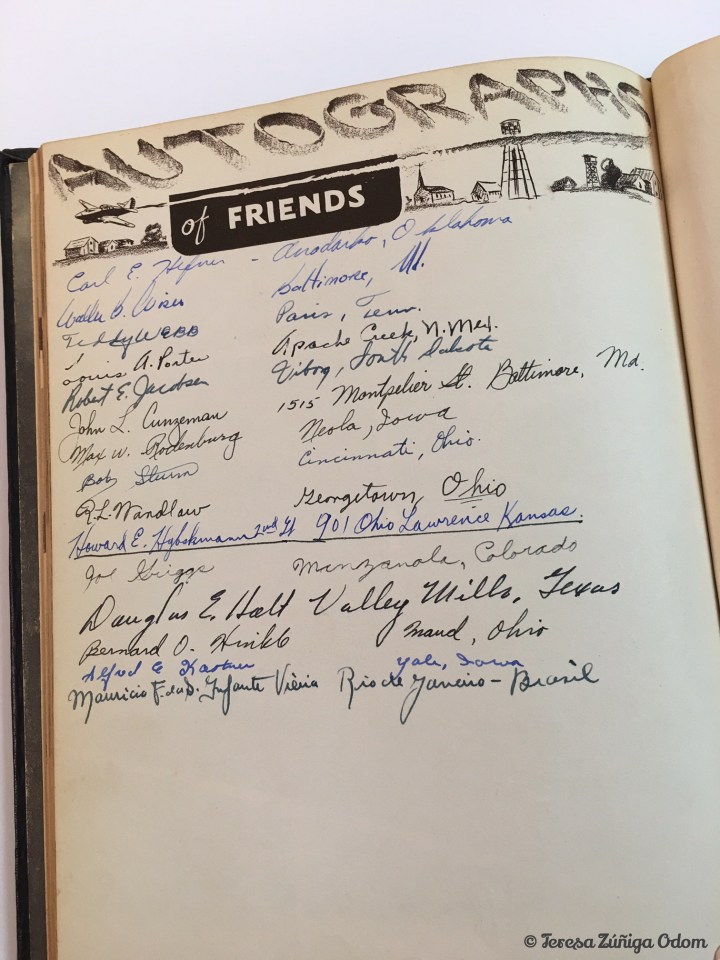 AUTOGRAPHS
of FRIENDS
Carl E. Hefner - Anadarko, Oklahoma
Walter B. Wiser Baltimore, Md.
Teddy Webb Paris, Tenn.
Louis A. Porter Apache Creek, N. Mex.
Robert E. Jacobsen Viborg, South Dakota
John L. Cunzeman 1515 Montpelier St. Baltimore, Md.
Max W. Rodenburg Neola, Iowa
Bob Sturm Cincinnati, Ohio.
R.L. Wandlaw Georgetown, Ohio
Howard E. 2nd Lt 901 Ohio Lawrence Kansas.
Joe Griggs Manzanola, Colorado
Douglas E. Holt Valley Mills, Texas
Bernard O. Hinkle Maud, Ohio
Alfred E. Yale, Iowa
Mauricio F. da S. Infante Vieira Rio de Janeiro - Brasil
© Teresa Zúñiga Odom